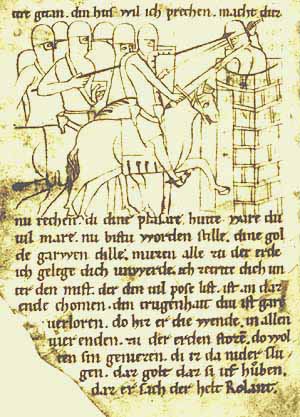 ure getan. din hus wil ich prechen. macht duz
nu rechen. di dine phalure. hutte ware du
uil mare. nu bistu worden stille. dine gol
de garwen dille. muzen alle zu der erde
ich gelege dich unwerde. ich zerrte dich un
ter den mist. der den uil pose list. ist in daz
ende chomen. den trugenhait diu ist gare
uerloren. do hiez er die wende. in allen
uier enden. zu der erden storen. do wol
ten sin genieren. di er da nider slu
gen. daz golt daz si uf huben.
daz er sach der helt Rolant.